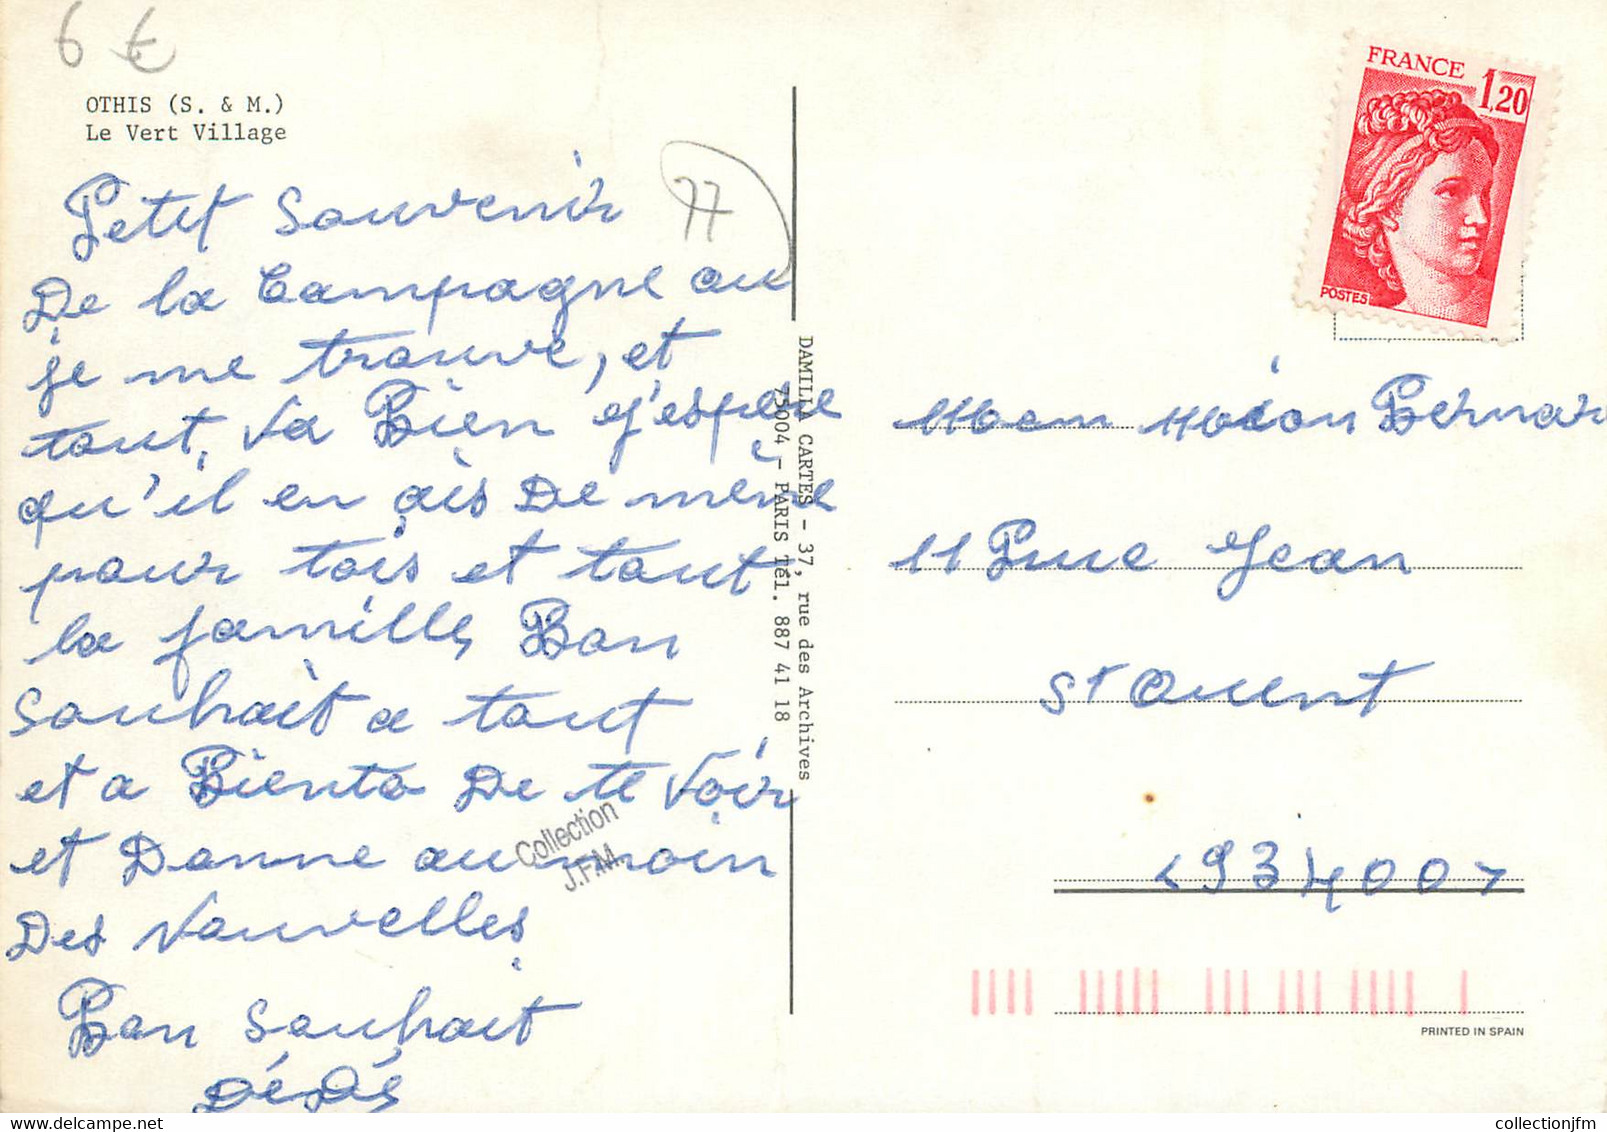 6 €
OTHIS (S. & M.)
Le Vert Village
77
Petit Souvenir
De la Campagne au
je me trouve, et
tout, va Bien j'espere
qu'il en ais De même
pour tois et tout
la famille, Bon
Souhait a tout
et a Biento De te Voir
et Donne au moin
Des Nouvelles
Bon Souhait
DéDé
Collection
J.F.M.
DAMILLA CARTES - 37, rue des Archives
75004 - PARIS Tél. 887 41 18
FRANCE
1,20
POSTES
11 Rue Jean
St Ouent
<93400>
PRINTED IN SPAIN
collectionjfm